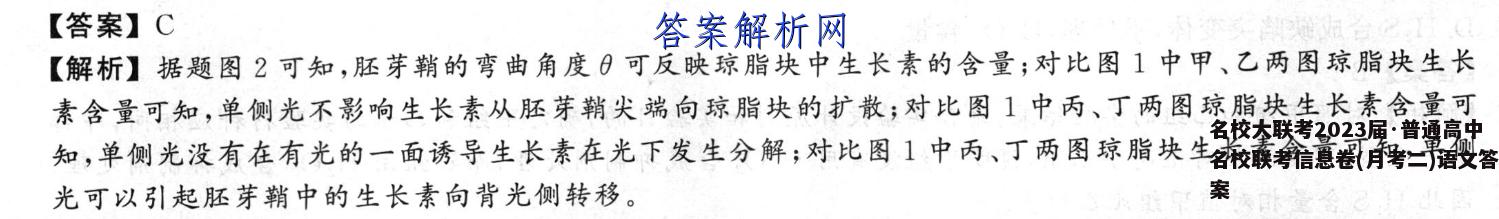 【答案】C
答案解析网
【解析】据题图2可知,胚芽鞘的弯曲角度θ可反映琼脂块中生长素的含量;对比图1中甲、乙两图琼脂块生长
素含量可知,单侧光不影响生长素从胚芽鞘尖端向琼脂块的扩散;对比图1中丙、丁两图琼脂块生长素含量可
知,单侧光没有在有光的一面诱导生长素在光下发生分解;对比图1中丙、丁两图琼脂块生长素含量可知,单侧
光可以引起胚芽鞘中的生长素向背光侧转移。
名校大联考2023届·普通高中
名校联考信息卷(月考二)语文答
案